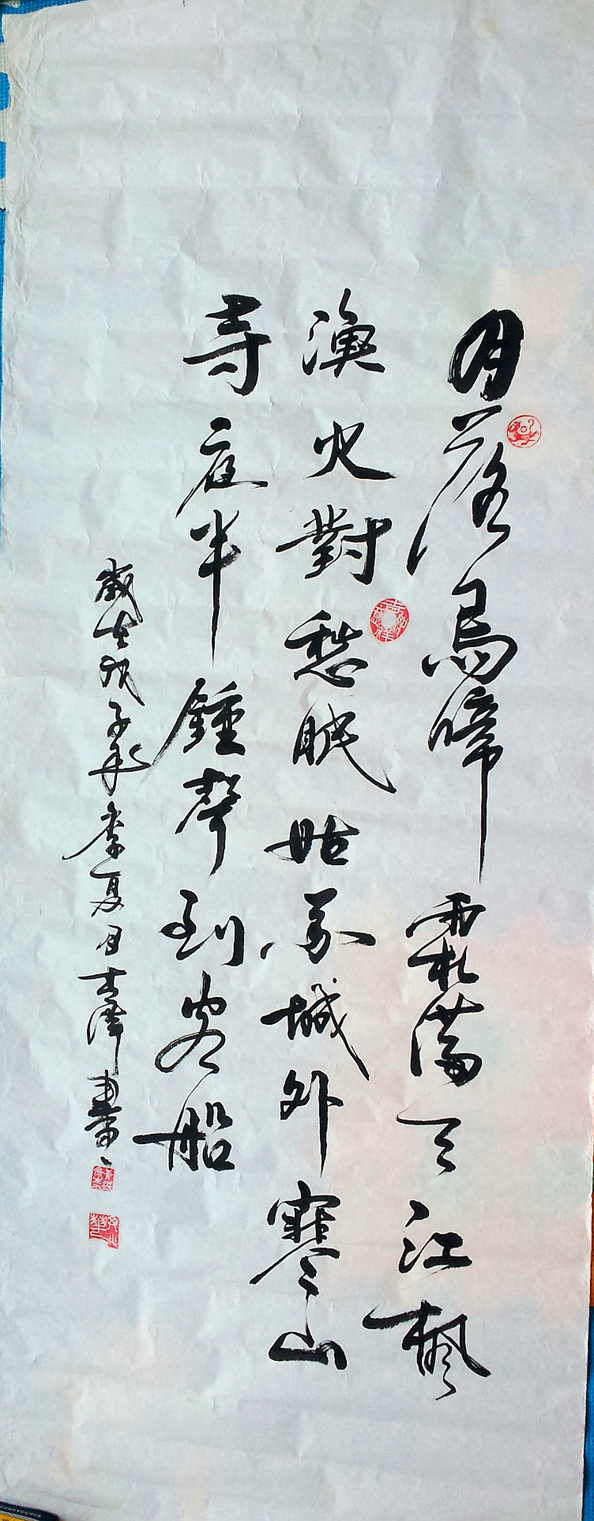 月落烏啼霜滿天江楓
漁火對愁眠姑蘇城外寒山
寺夜半鍾聲到客船
歲在戊子年季夏月士澤書